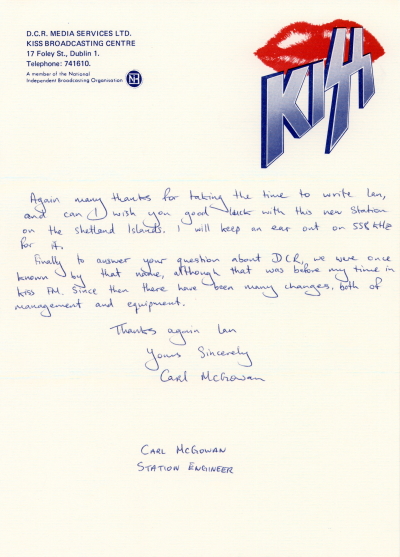 D.C.R. MEDIA SERVICES LTD.
KISS BROADCASTING CENTRE
17 Foley St., Dublin 1.
Telephone: 741610.
A member of the National
Independent Broadcasting Organisation
KISS
Again many thanks for taking the time to write Ian,
and can I wish you good luck with this new Station
on the Shetland Islands. I will keep an ear out on 558 kHz
for it.
Finally to answer your question about DCR, we were once
known by that name, although that was before my time in
Kiss FM. Since then there have been many changes, both of
management and equipment.
Thanks again Ian
Yours Sincerely
Carl McGowan
CARL McGOWAN
STATION ENGINEER